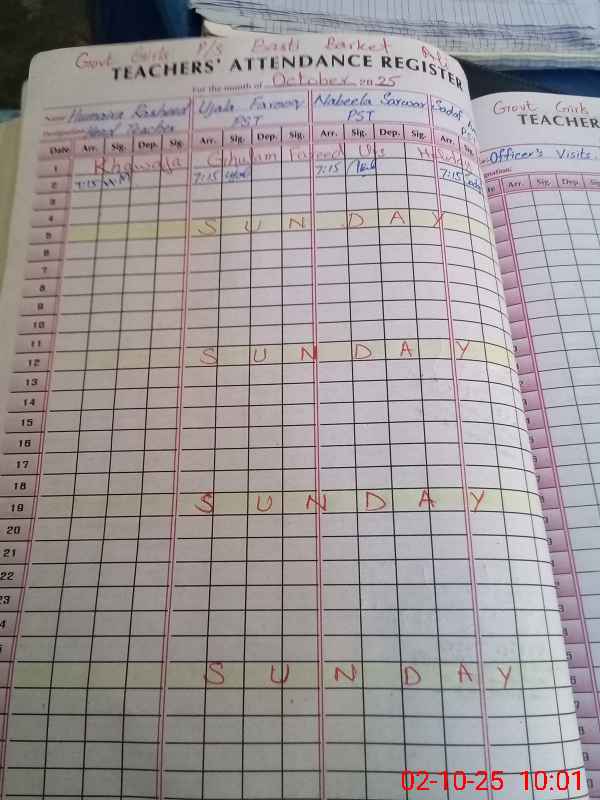 Govt Girls P/S Basti Barket Ali
TEACHERS' ATTENDANCE REGISTER
For the month of October 2025
Name Humaira Rasheed Ujala Farooq Nabeela Sarwar Sadaf
Designation Head Teacher PST PST
Date Arr. Sig. Dep. Sig Arr. Sig. Dep. Sig. Arr. Sig. Dep. Sig. Arr. Sig.
1 Khawaja Ghulam Fareed Urs Holiday
2 7:15 7:15 7:15 7:15
3
4
5 SUNDAY
6
7
8
9
10
11
12 SUNDAY
13
14
15
16
17
18
19 SUNDAY
20
21
22
23
SUNDAY
Govt Girls
TEACHER
Officer's Visits.
Arr. Sig. Dep.
02-10-25 10:01